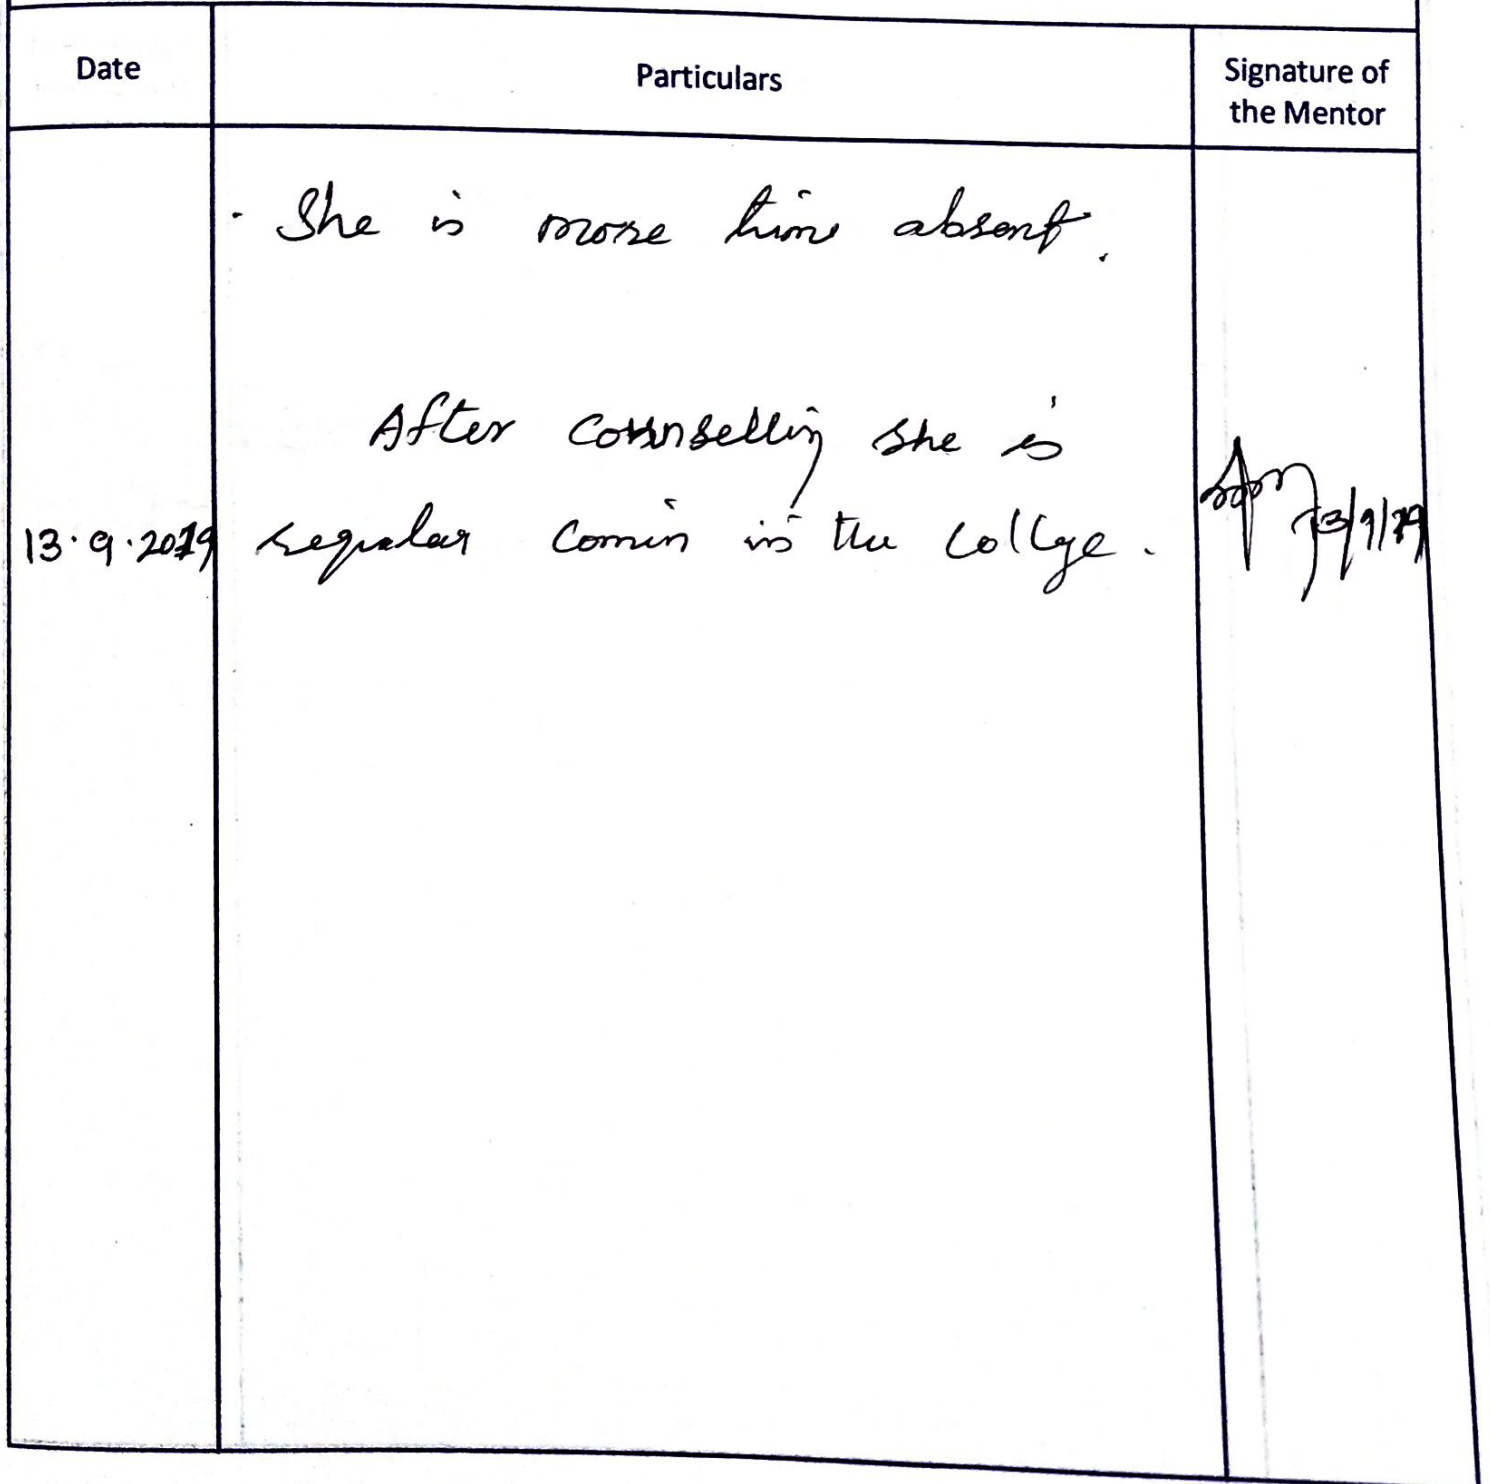 Date Particulars Signature of
the Mentor
. She is more time absent.
After counselling she is
13.9.2019 regular comin in the collge. 13/9/19